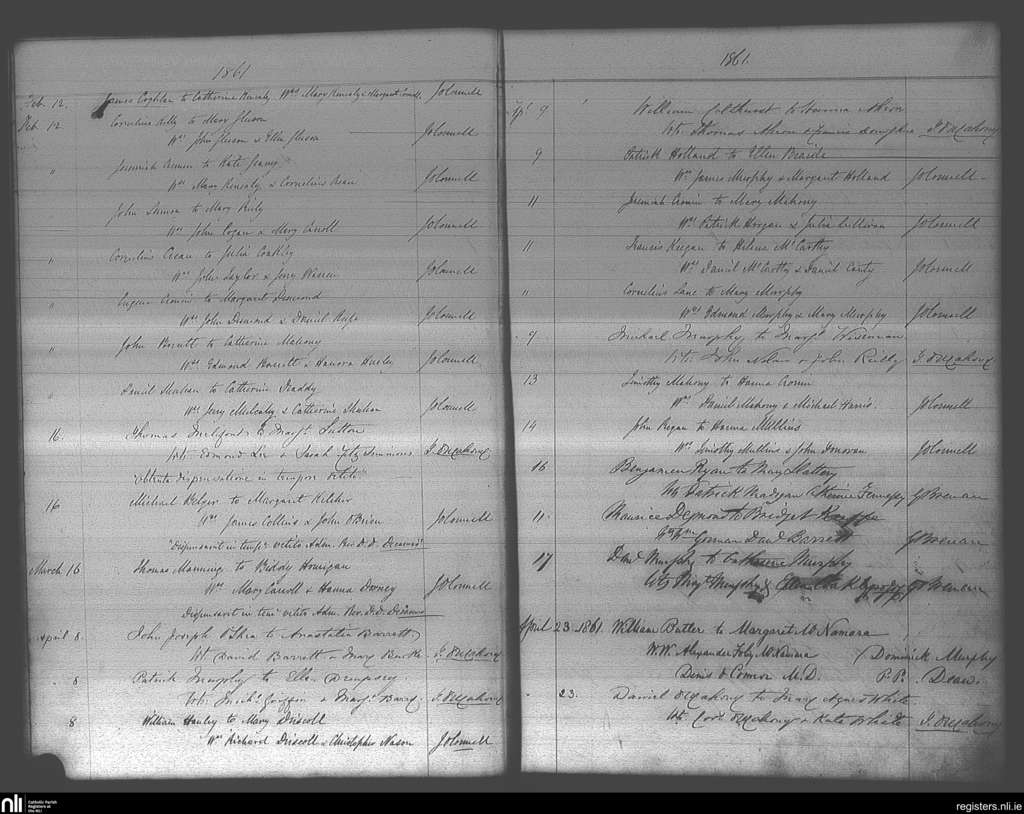 1861
Feb. 12. James Coghlan to Catherine Kenealy Wts Mary Kenealy & Margaret JOConnell
Feb. 12 Cornelius Kelly to Mary Gleeson
Wts John Gleeson & Ellen Gleeson JOConnell
" Jeremiah to Kate
Wts Mary Kenealy & Cornelius JOConnell
" John to Mary Kiely
Wts John Cogan & Mary Carroll JOConnell
" Cornelius Crean to Julia Coakley
Wts John Taylor & Jerry Warren JOConnell
" Eugene Cronin to Margaret Desmond
Wts John Desmond & Daniel JOConnell
" John Barrett to Catherine Mahony
Wts Edmond Barrett & Hanora JOConnell
" Daniel Sheehan to Catherine Deaddy
Wts Jerry Mulcahy & Catherine Sheehan JOConnell
16. Thomas to Margt. Sutton
Wts. Edmond Lee & Sarah Fitz Simmons J. OMahony
obtenta dispensatione in tempore vetito
16 Michael Belger to Margaret Kelcher
Wts James Collins & John OBrien JOConnell
"Dispensavit in temp. vetito Adm. Rev. D.D. Decanus"
March 16 Thomas Manning to Biddy Hourigan
Wts Mary Carroll & Hanna Downey JOConnell
Dispensavit in tem. vetito Adm. Rev. D.D. Decanus
April 8 John Joseph O'Shea to Anastatia Barrett
Wts David Barrett & Mary Burke J. OMahony
" 8 Patrick Murphy to Ellen Dempsey
Wts. Michl. & Margt. Barry J. OMahony
8 William Hanley to Mary Driscoll
Wts Richard Driscoll & Christopher Nason JOConnell
1861.
Apl 9 William to
Wts. Thomas & J. OMahony
9 Patrick Holland to Ellen
Wts James Murphy & Margaret Holland JOConnell
11 Jeremiah Cronin to Mary Mahony
Wts Patrick Horgan & Julia Sullivan JOConnell
11 Francis Keegan to Helena McCarthy
Wts Daniel McCarthy & Daniel Canty JOConnell
" Cornelius Lane to Mary Murphy
Wts Edmond Murphy & Mary Murphy JOConnell
9 Michael Murphy to Margt.
Wts. John Nolan & John Reilly J. OMahony
13 Timothy Mahony to Hanna Cronin
Wts Daniel Mahony & Michael Harris. JOConnell
14 John Regan to Hanna Mullins
Wts Timothy Mullins & John Donovan JOConnell
16 Benjamin Ryan to Mary Slattery
Wts Patrick Madigan J Brenan
11. Maurice Desmond to Bridget
Gorman Danl Barrett J Brenan
17 Danl Murphy to Catherine Murphy
Wts Margt Murphy & J Brenan
April 23 1861. William Butler to Margaret McNamara
W.W. Alexander Foley McNamara Dominick Murphy
Denis O'Connor M.D. P.P. Dean.
" 23. Daniel OMahony to Mary Agnes White
Wts. Corns OMahony & Kate White J. OMahony
nli
Catholic Parish
Registers at
the NLI
registers.nli.ie